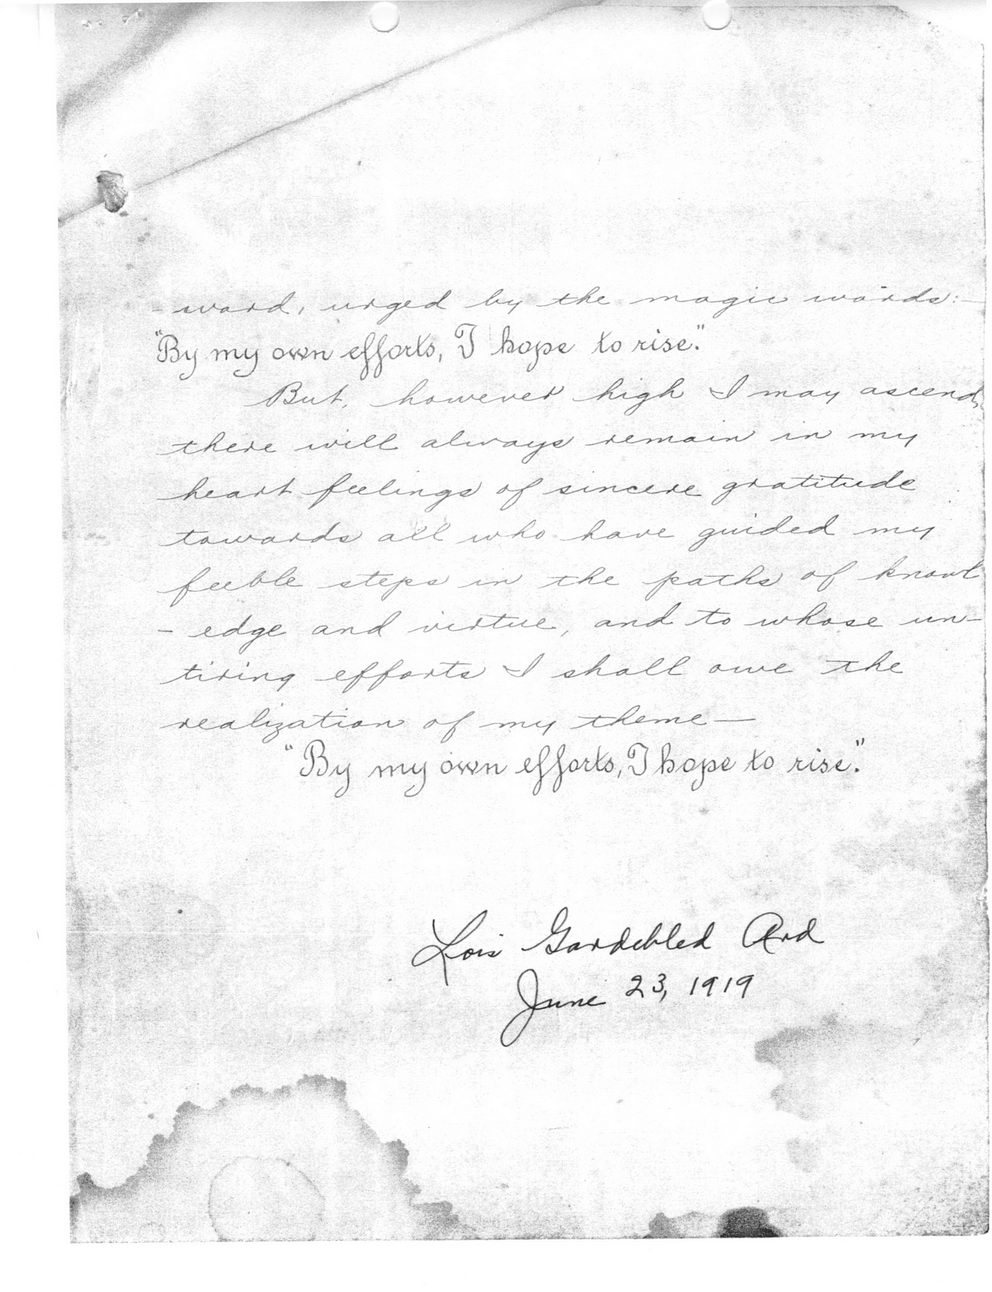 - ward, urged by the magic words:—
"By my own efforts, I hope to rise."
But, however high I may ascend,
there will always remain in my
heart feelings of sincere gratitude
towards all who have guided my
feeble steps in the paths of knowl
- edge and virtue, and to whose un-
tiring efforts I shall owe the
realization of my theme—
"By my own efforts, I hope to rise."
Lois Gardebled Ard
June 23, 1919